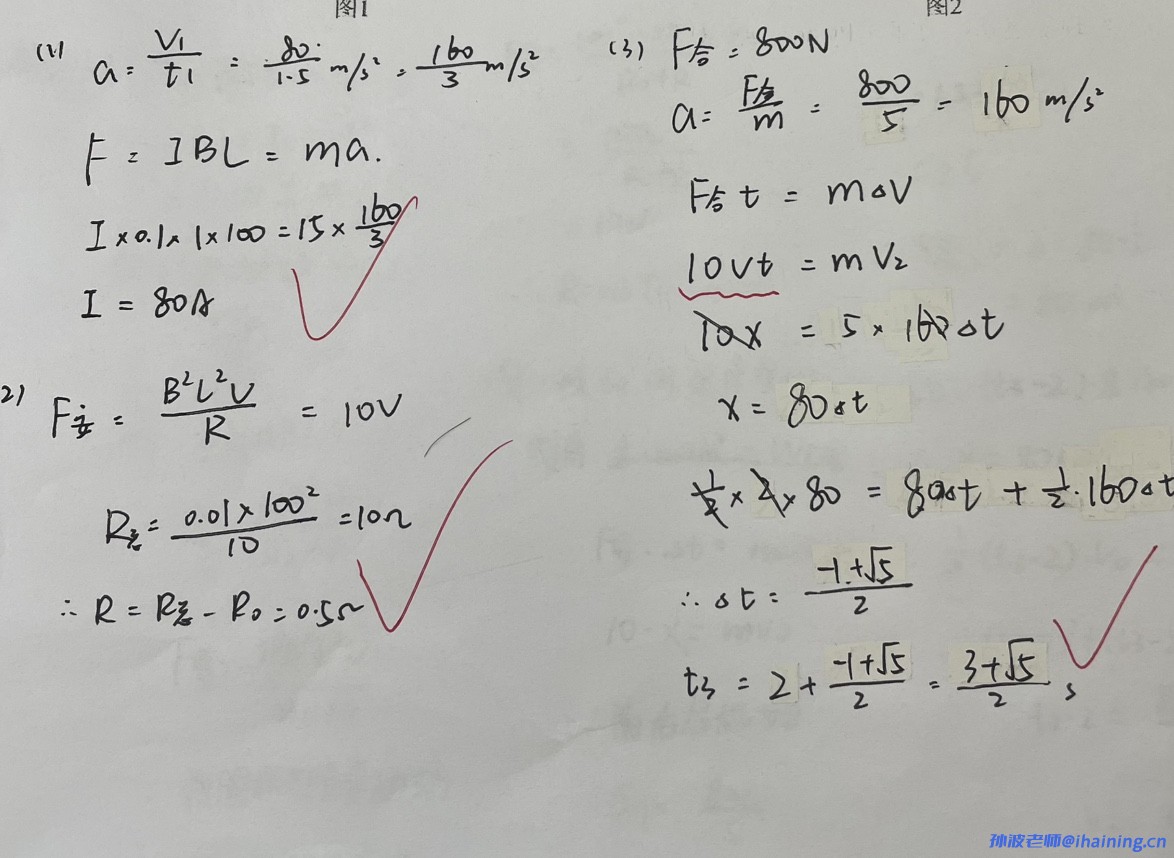 图1
(1) a = V₁/t₁ = 80/1.5 m/s² = 160/3 m/s²
F = IBL = ma.
I × 0.1 × 1 × 100 = 15 × 160/3
I = 80A
2) F安 = B²L²V/R = 10V
R总 = 0.01×100²/10 = 10Ω
∴ R = R总 - R₀ = 0.5Ω
图2
(3) F合 = 800N
a = F合/m = 800/5 = 160 m/s²
F合 t = m△V
10Vt = mV₂
10x = 5 × 160△t
x = 80△t
1/2 × 2 × 80 = 80△t + 1/2·160△t
∴ △t = (-1+√5)/2
t₃ = 2 + (-1+√5)/2 = (3+√5)/2 s
孙波老师@ihaining.cn